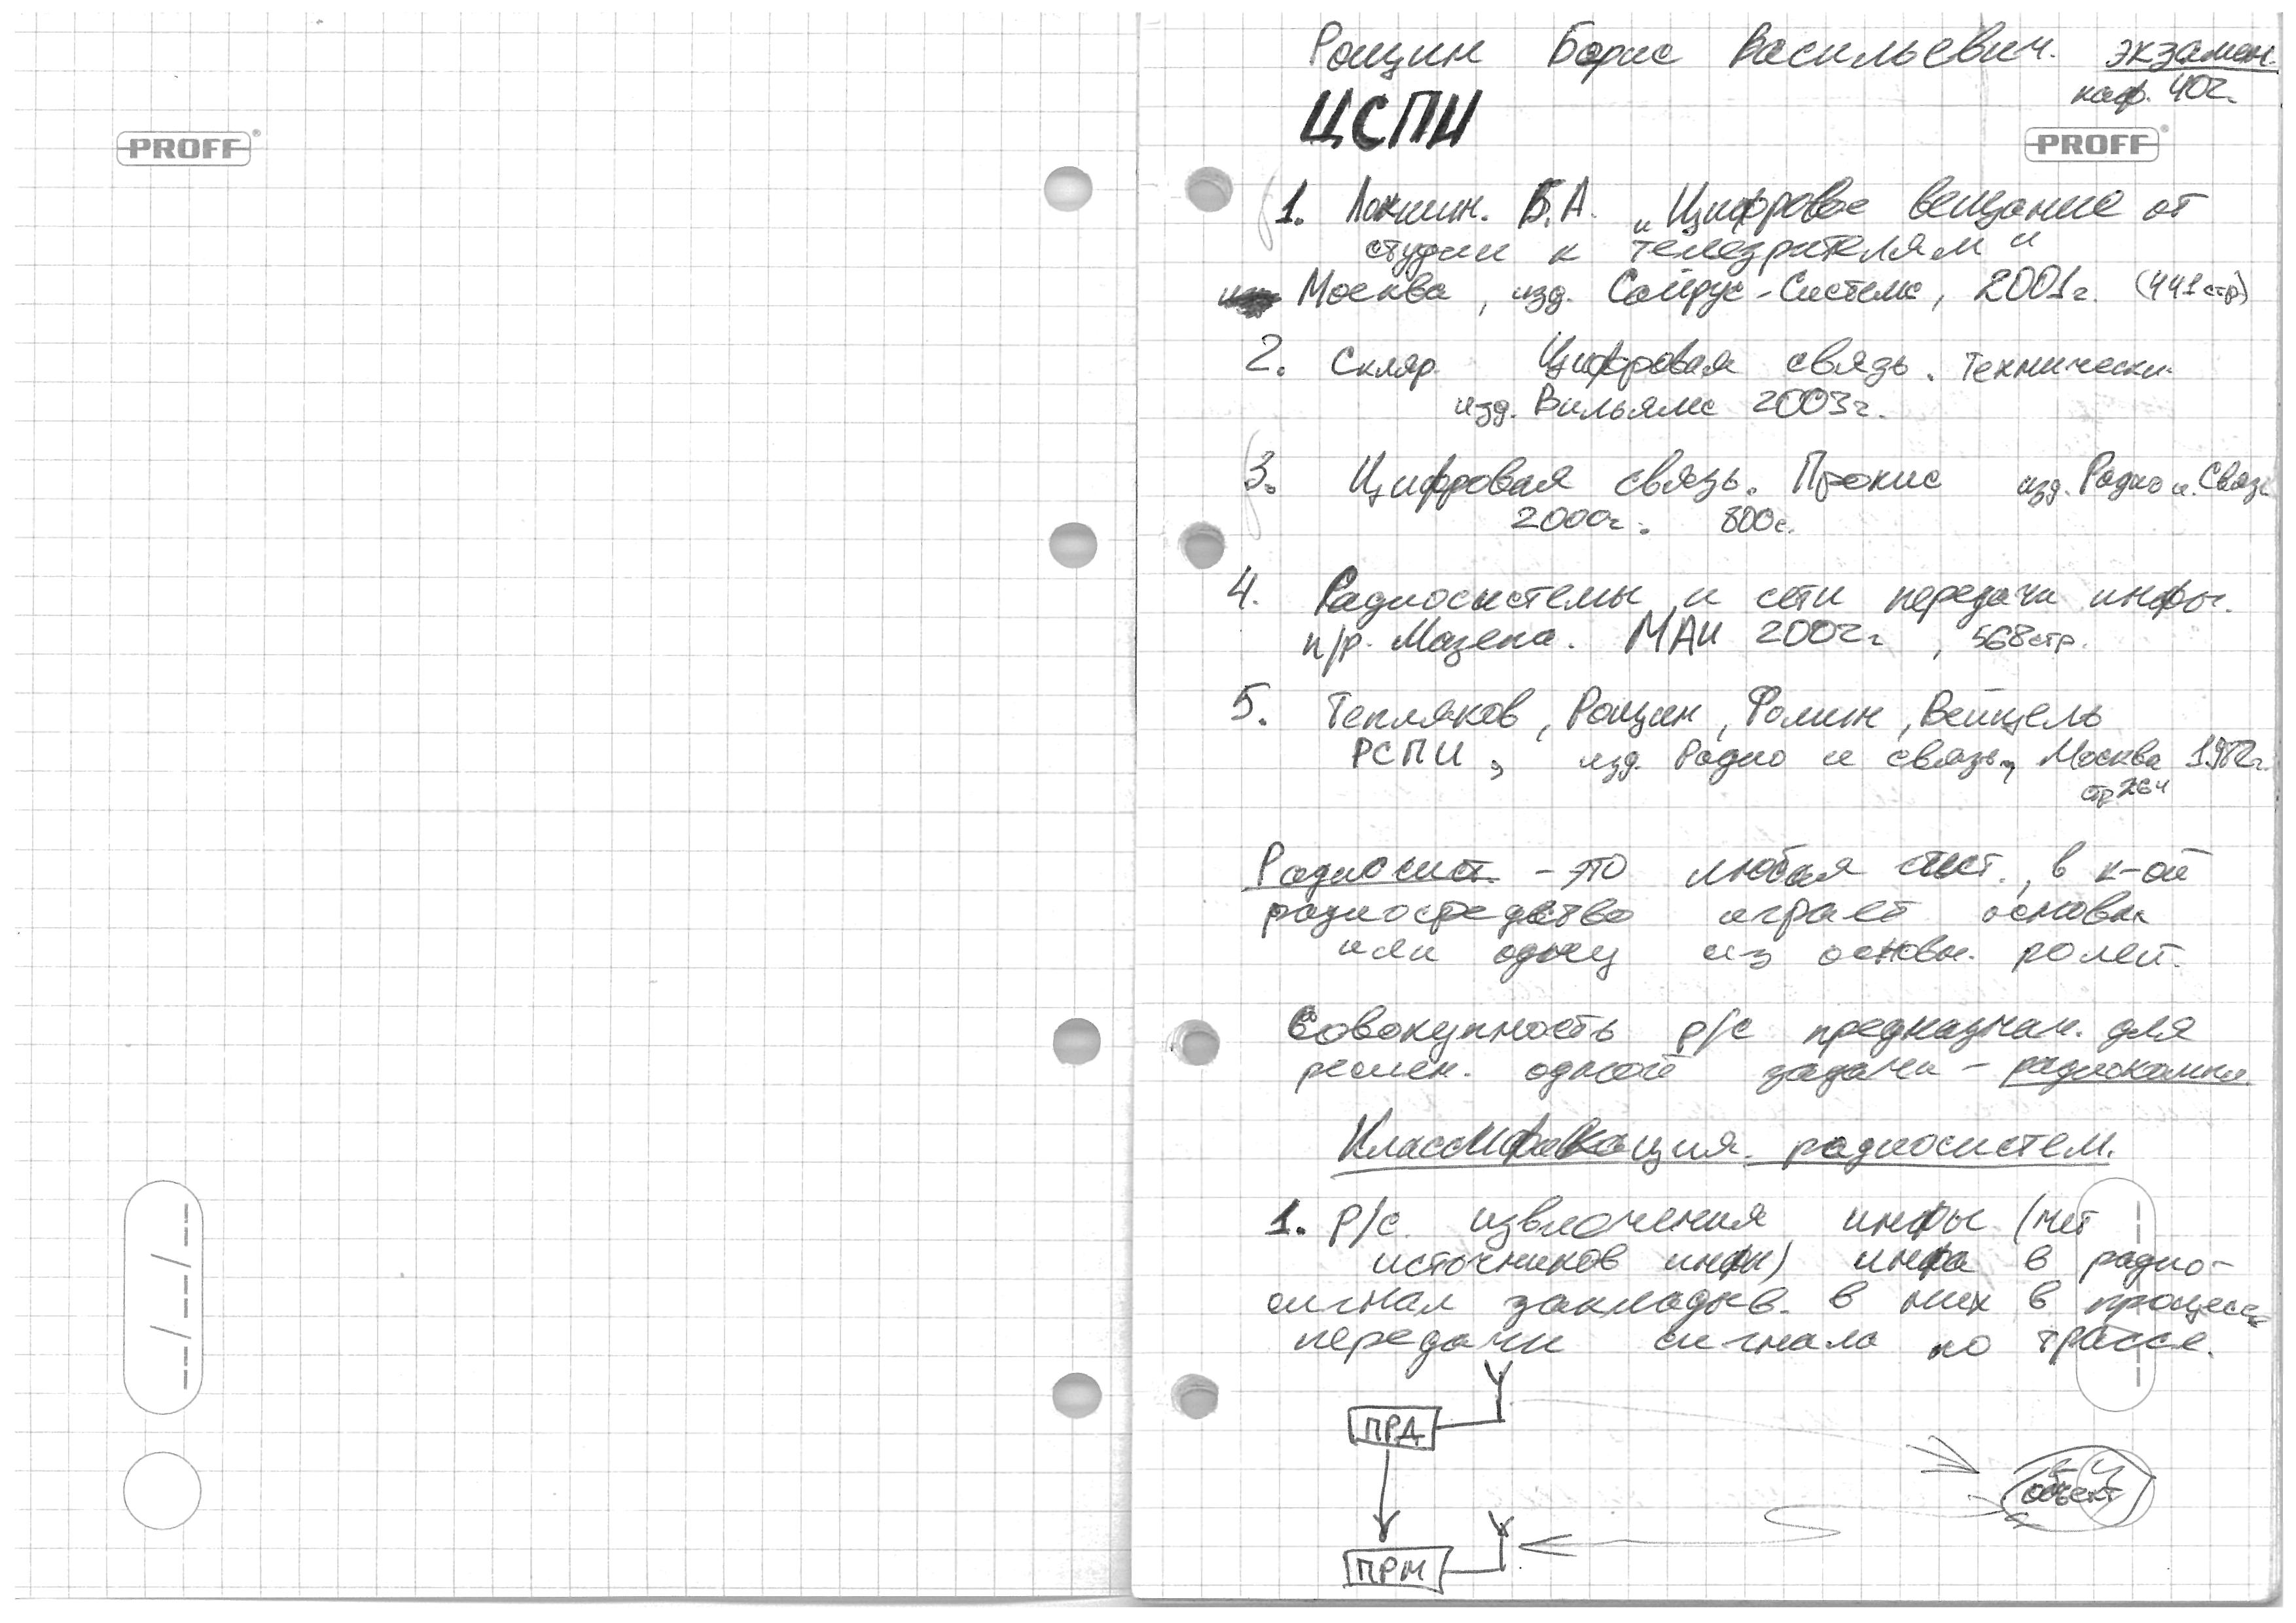 PROFF
Рощин Борис Васильевич. экзамен.
каф. 402.
ЦСПИ
PROFF
1. Локшин. Б.А. „Цифровое вещание от
студии к телезрителям"
Москва, изд. Сайрус-Системс, 2001г. (441стр)
2. Скляр Цифровая связь. Технически
изд. Вильямс 2003г.
3. Цифровая связь. Прокис изд. Радио и Связь
2000г. 800с.
4. Радиосистемы и сети передачи инфы.
п/р. Мазепа. МАИ 2002г, 568стр.
5. Тепляков, Рощин, Фомин, Вейцель
РСПИ, изд. Радио и связь, Москва 1982г.
стр 264
Радиосист. - это любая сист., в к-ой
радиосредство играет основн
или одну из основн. ролей.
Совокупность р/с предназнач. для
решен. одной задачи - радиокомпл.
Классификация радиосистем.
1. Р/с. извлечения инфы (нет
источников инфы) инфа в радио-
сигнал закладыв. в них в процессе
передачи сигнала по трассе.
ПРД
объект
ПРМ